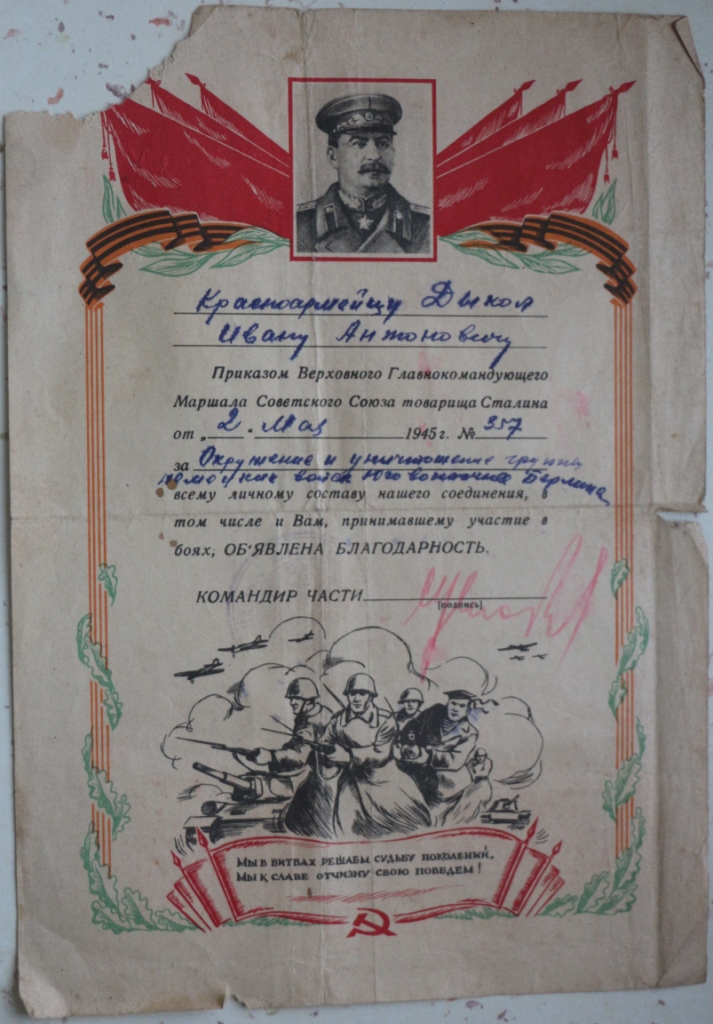 Красноармейцу Дыкол
Ивану Антоновичу
Приказом Верховного Главнокомандующего
Маршала Советского Союза товарища Сталина
от „2. Мая 1945 г. № 357
за Окружение и уничтожение группы
немецких войск Юговосточнее Берлина
всему личному составу нашего соединения, в
том числе и Вам, принимавшему участие в
боях, ОБ'ЯВЛЕНА БЛАГОДАРНОСТЬ.
КОМАНДИР ЧАСТИ
[подпись]
Мы в битвах решаем судьбу поколений,
Мы к славе отчизну свою поведем!